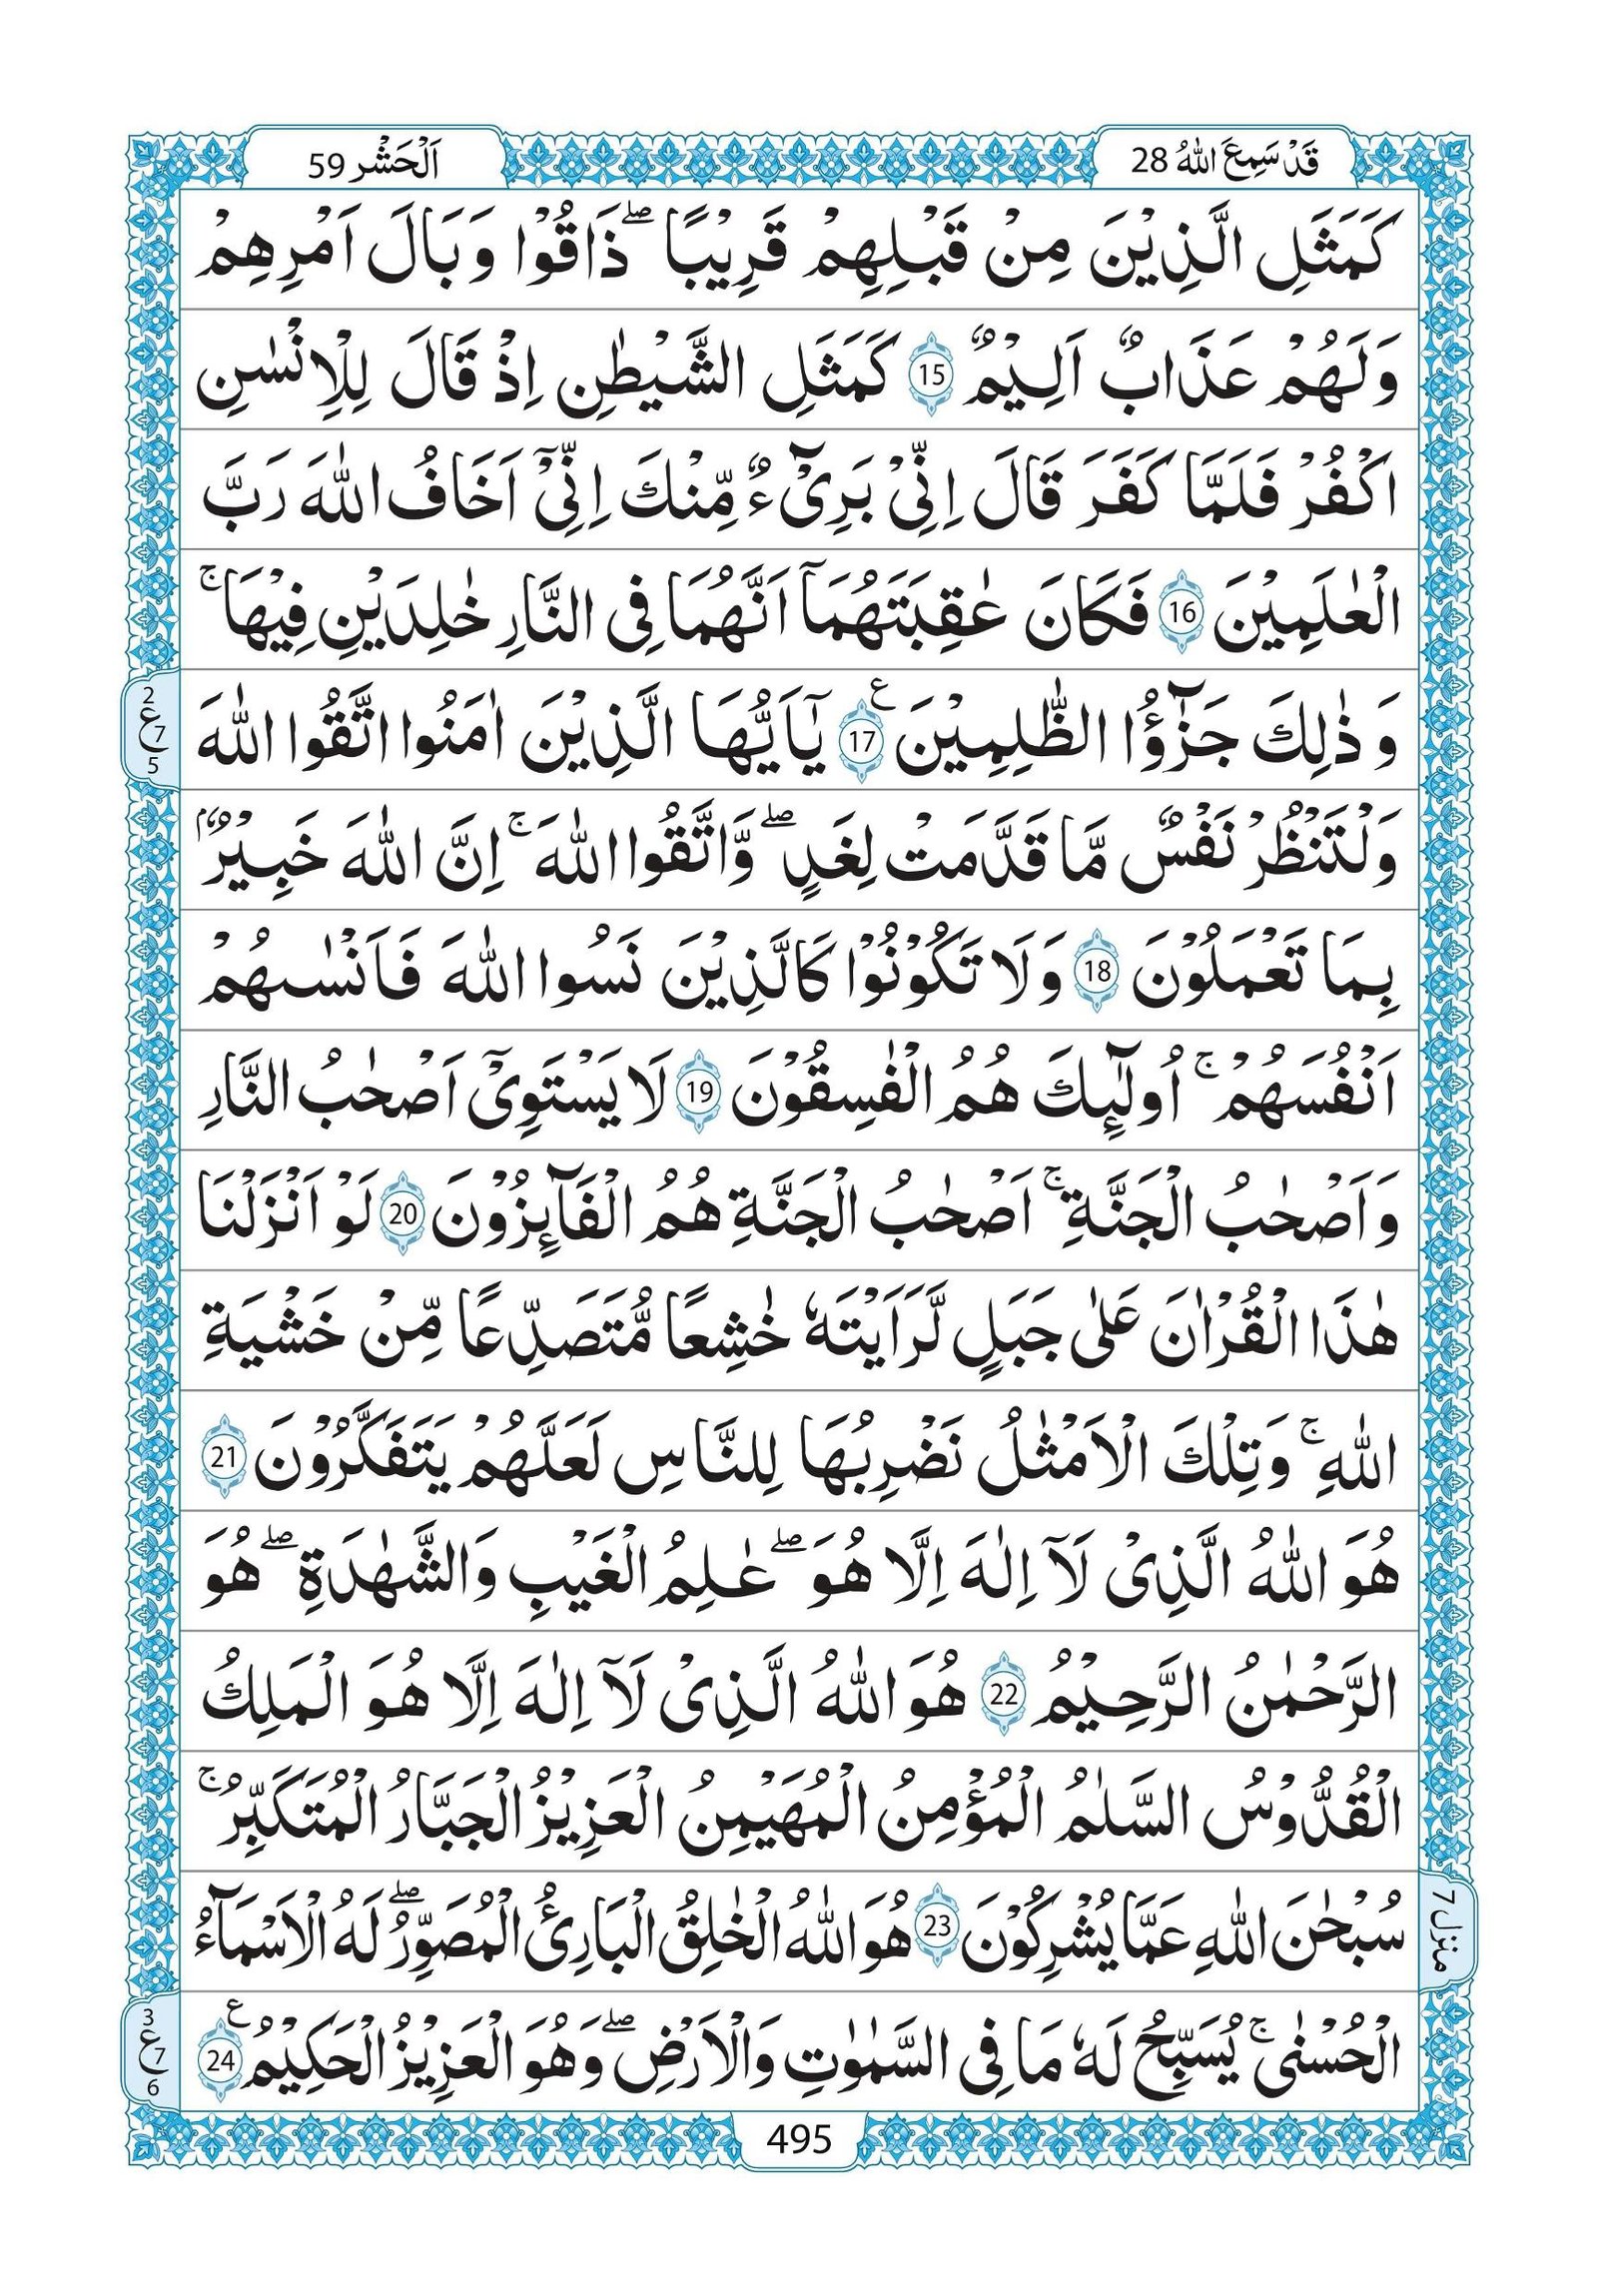 قَدْ سَمِعَ اللهُ 28
اَلْحَشْر 59
كَمَثَلِ الَّذِيْنَ مِنْ قَبْلِهِمْ قَرِيْبًا ۖ ذَاقُوْا وَبَالَ اَمْرِهِمْ
وَلَهُمْ عَذَابٌ اَلِيْمٌ 15 كَمَثَلِ الشَّيْطٰنِ اِذْ قَالَ لِلْاِنْسٰنِ
اكْفُرْ فَلَمَّا كَفَرَ قَالَ اِنِّيْ بَرِيْٓءٌ مِّنْكَ اِنِّيْٓ اَخَافُ اللهَ رَبَّ
الْعٰلَمِيْنَ 16 فَكَانَ عٰقِبَتَهُمَآ اَنَّهُمَا فِى النَّارِ خٰلِدَيْنِ فِيْهَا ۚ
وَذٰلِكَ جَزٰٓؤُا الظّٰلِمِيْنَ ع 17 يٰٓاَيُّهَا الَّذِيْنَ اٰمَنُوا اتَّقُوا اللهَ
وَلْتَنْظُرْ نَفْسٌ مَّا قَدَّمَتْ لِغَدٍ ۖ وَّاتَّقُوا اللهَ ۚ اِنَّ اللهَ خَبِيْرٌۢ
بِمَا تَعْمَلُوْنَ 18 وَلَا تَكُوْنُوْا كَالَّذِيْنَ نَسُوا اللهَ فَاَنْسٰىهُمْ
اَنْفُسَهُمْ ۚ اُولٰٓئِكَ هُمُ الْفٰسِقُوْنَ 19 لَا يَسْتَوِيْٓ اَصْحٰبُ النَّارِ
وَاَصْحٰبُ الْجَنَّةِ ۚ اَصْحٰبُ الْجَنَّةِ هُمُ الْفَآئِزُوْنَ 20 لَوْ اَنْزَلْنَا
هٰذَا الْقُرْاٰنَ عَلٰى جَبَلٍ لَّرَاَيْتَهٗ خٰشِعًا مُّتَصَدِّعًا مِّنْ خَشْيَةِ
اللهِ ۚ وَتِلْكَ الْاَمْثٰلُ نَضْرِبُهَا لِلنَّاسِ لَعَلَّهُمْ يَتَفَكَّرُوْنَ 21
هُوَ اللهُ الَّذِيْ لَآ اِلٰهَ اِلَّا هُوَ ۖ عٰلِمُ الْغَيْبِ وَالشَّهٰدَةِ ۖ هُوَ
الرَّحْمٰنُ الرَّحِيْمُ 22 هُوَ اللهُ الَّذِيْ لَآ اِلٰهَ اِلَّا هُوَ الْمَلِكُ
الْقُدُّوْسُ السَّلٰمُ الْمُؤْمِنُ الْمُهَيْمِنُ الْعَزِيْزُ الْجَبَّارُ الْمُتَكَبِّرُ ۚ
سُبْحٰنَ اللهِ عَمَّا يُشْرِكُوْنَ 23 هُوَ اللهُ الْخٰلِقُ الْبَارِئُ الْمُصَوِّرُ ۖ لَهُ الْاَسْمَآءُ
الْحُسْنٰى ۚ يُسَبِّحُ لَهٗ مَا فِى السَّمٰوٰتِ وَالْاَرْضِ ۖ وَهُوَ الْعَزِيْزُ الْحَكِيْمُ ع 24
2
ع 7
5
منزل 7
3
ع 7
6
495